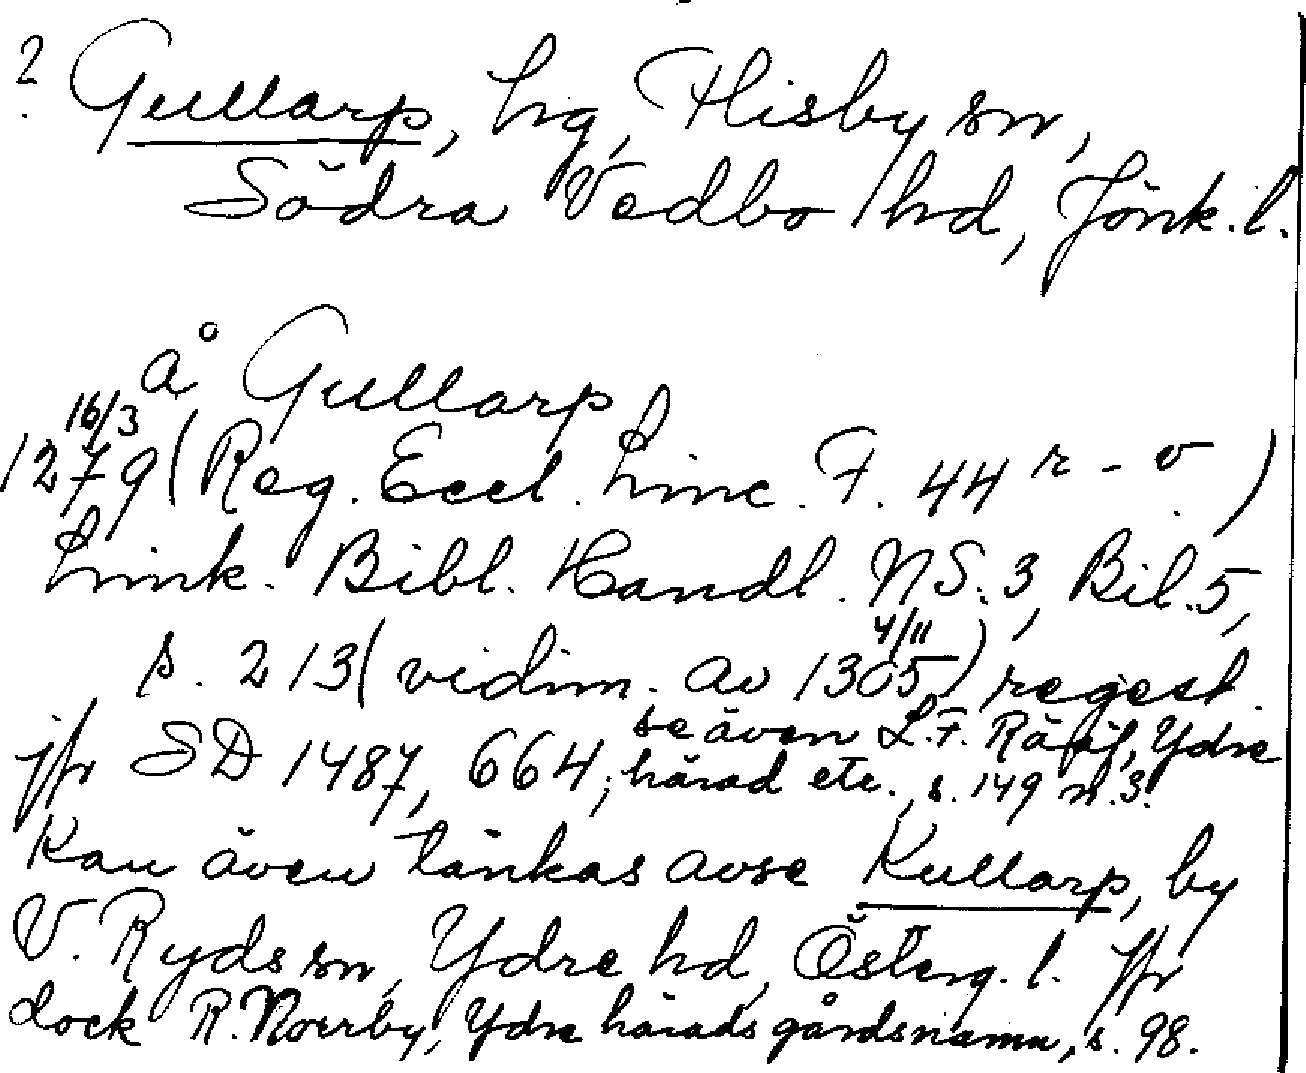 ? Gullarp, hg, Flisby sn,
Södra Vedbo hd, Jönk. l.
å Gullarp
16/3
1279 (Reg. Eccl. Linc. F. 44 r - v.)
Link. Bibl. Handl. NS. 3, Bil. 5,
s. 213 (vidim. av 4/11 1305) regest.
jfr SD 1487, 664; se även L.F. Rääf, Ydre
härad etc., s. 149 n. 3.
Kan även tänkas avse Kullarp, by
V. Ryds sn, Ydre hd, Österg. l. jfr
dock R. Norrby, Ydre härads gårdsnamn, s. 98.